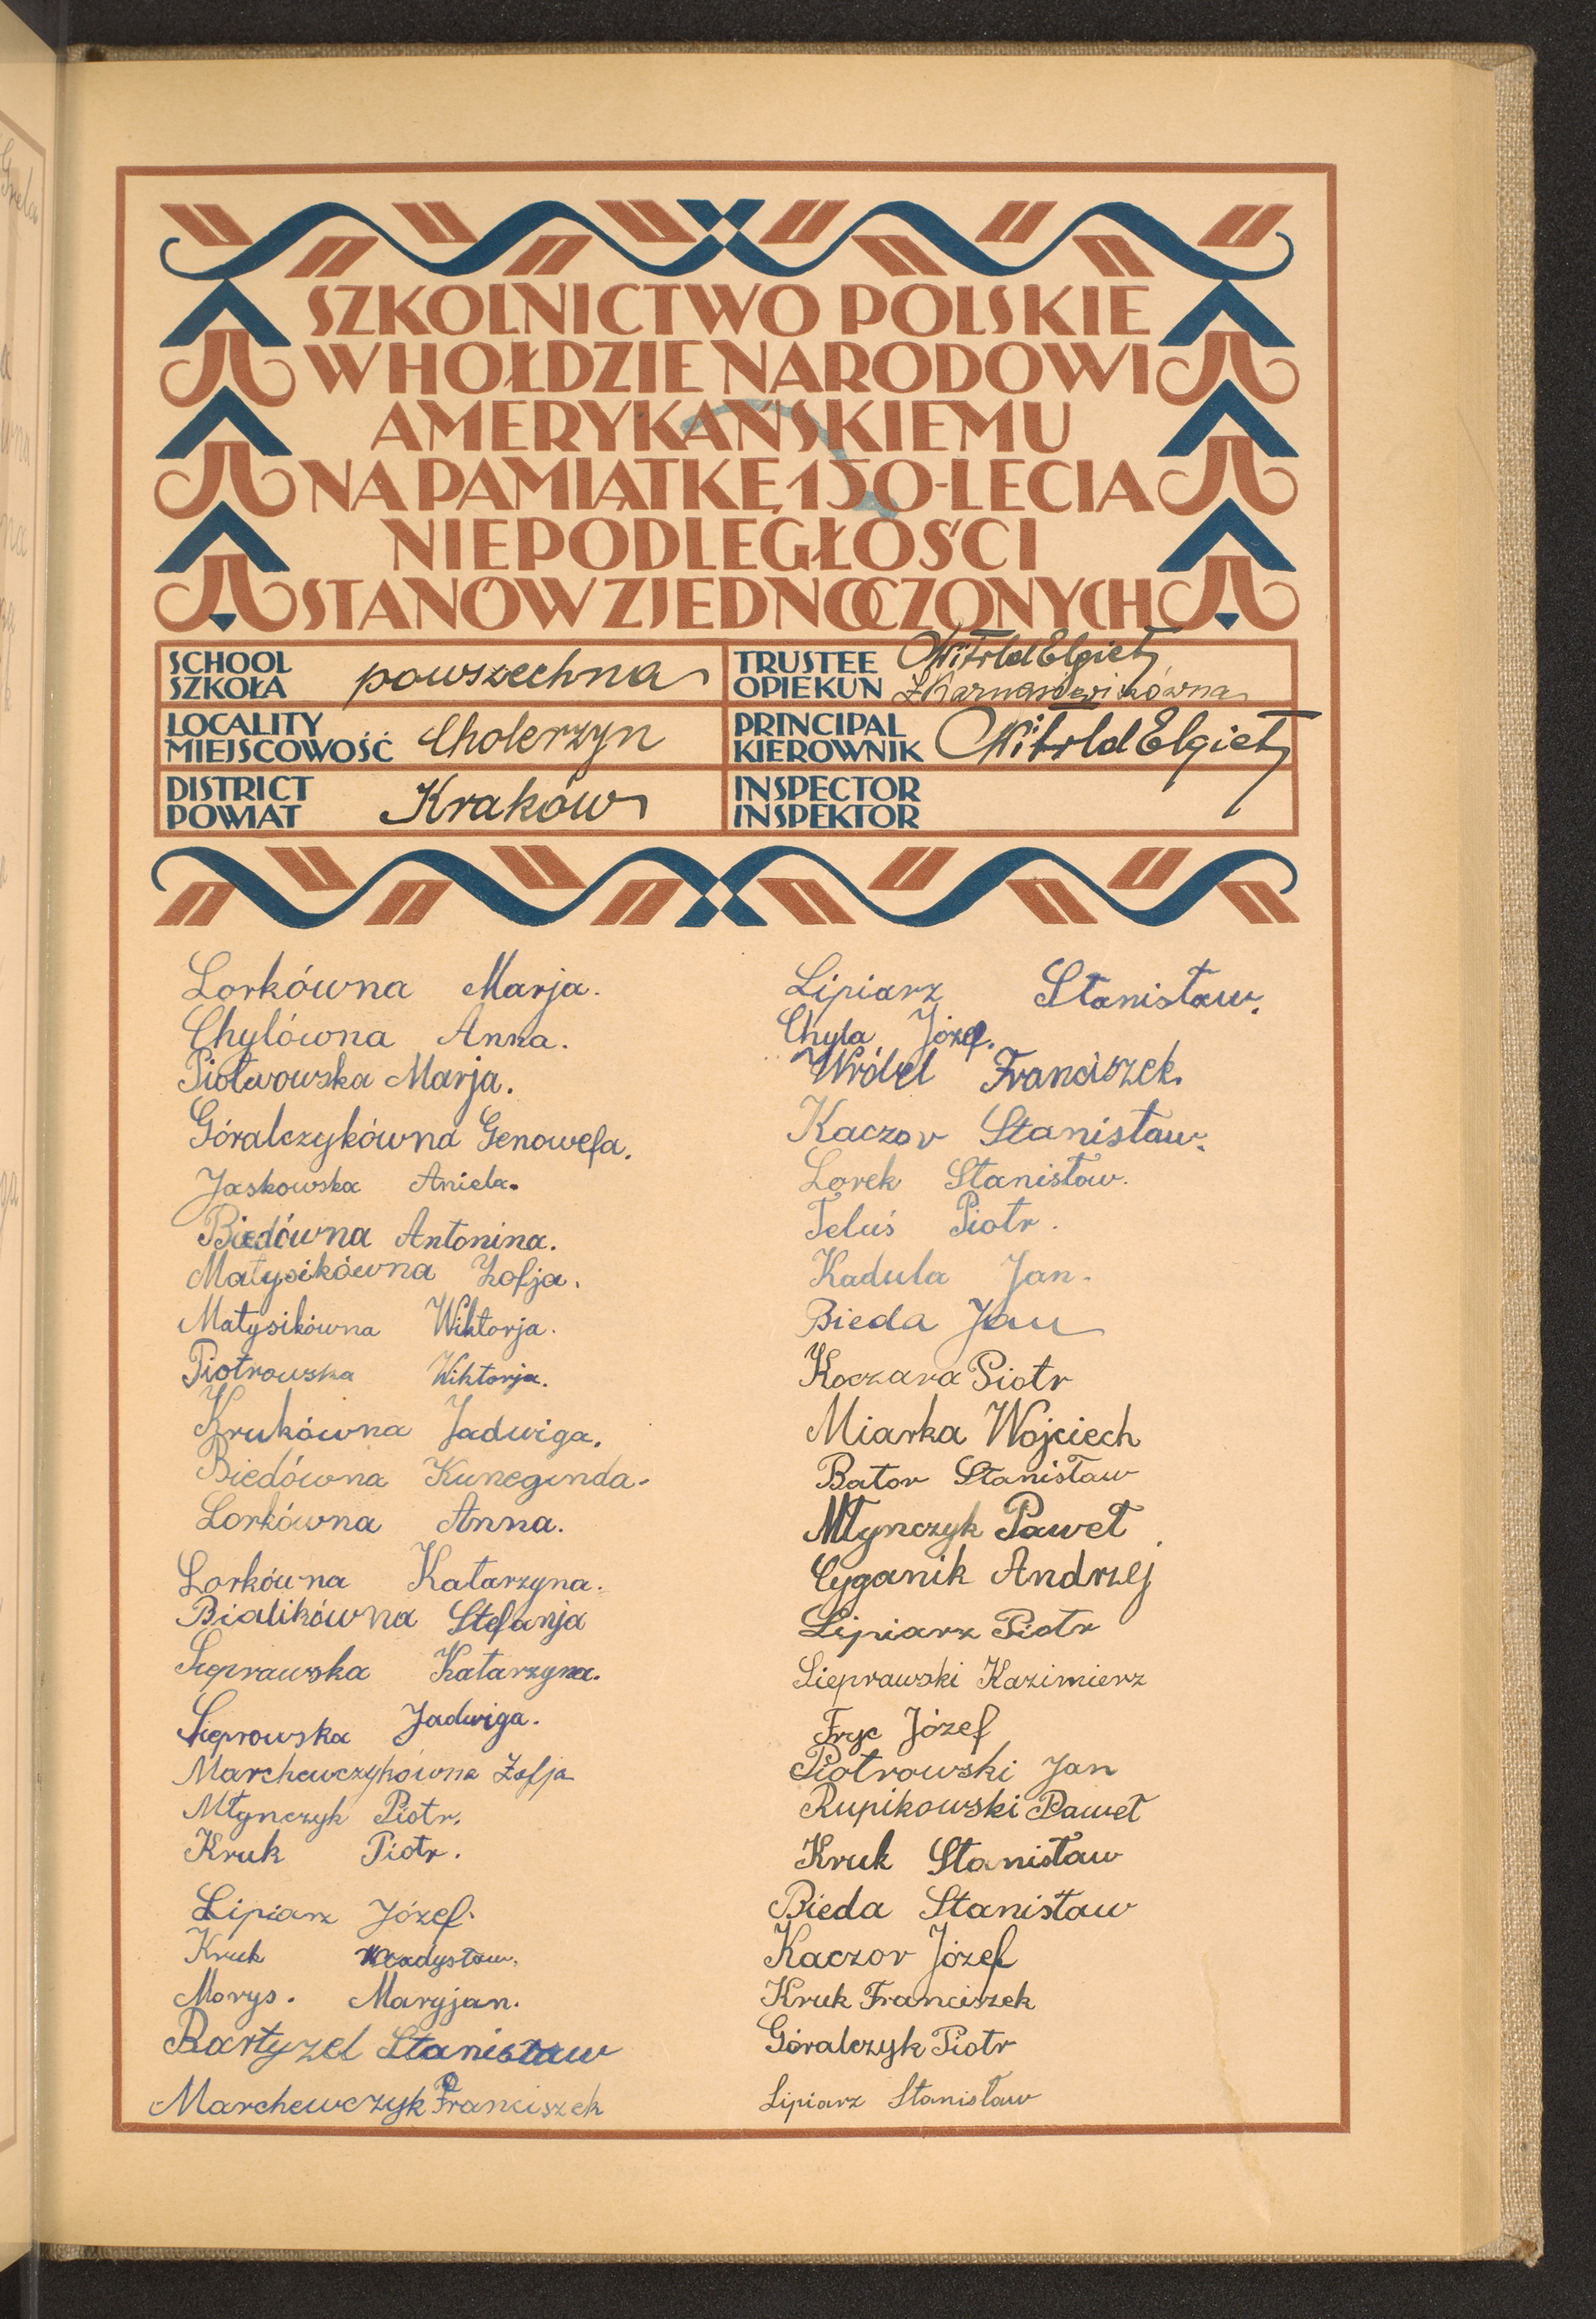 SZKOLNICTWO POLSKIE
W HOŁDZIE NARODOWI
AMERYKAŃSKIEMU
NA PAMIĄTKĘ 150-LECIA
NIEPODLEGŁOŚCI
STANÓW ZJEDNOCZONYCH
SCHOOL
SZKOŁA
powszechna
TRUSTEE
OPIEKUN
Witold Elgiet
LOCALITY
MIEJSCOWOŚĆ
Cholerzyn
PRINCIPAL
KIEROWNIK
Witold Elgiet
DISTRICT
POWIAT
Kraków
INSPECTOR
INSPEKTOR
Lorkówna Marja.
Chylówna Anna.
Piotrowska Marja.
Góralczykówna Genowefa.
Jaskowska Aniela.
Biedówna Antonina.
Matysikówna Zofja.
Matysikówna Wiktorja.
Piotrowska Wiktorja.
Krukówna Jadwiga.
Biedówna Kunegunda.
Lorkówna Anna.
Lorkówna Katarzyna.
Bialikówna Stefanja
Sieprawska Katarzyna.
Sieprowska Jadwiga.
Marchewczykówna Zofja
Młynczyk Piotr.
Kruk Piotr.
Lipiarz Józef.
Kruk Władysław.
Morys. Maryjan.
Bartyzel Stanisław
Marchewczyk Franciszek
Lipiarz Stanisław.
Chyla Józef.
Wróbel Franciszek.
Kaczor Stanisław.
Lorek Stanisław.
Teluś Piotr.
Kadula Jan.
Bieda Jan
Koczara Piotr
Miarka Wojciech
Bator Stanisław
Młynczyk Paweł
Cyganik Andrzej
Lipiarz Piotr
Sieprawski Kazimierz
Fryc Józef
Piotrowski Jan
Rupikowski Paweł
Kruk Stanisław
Bieda Stanisław
Kaczor Józef
Kruk Franciszek
Góralczyk Piotr
Lipiarz Stanisław